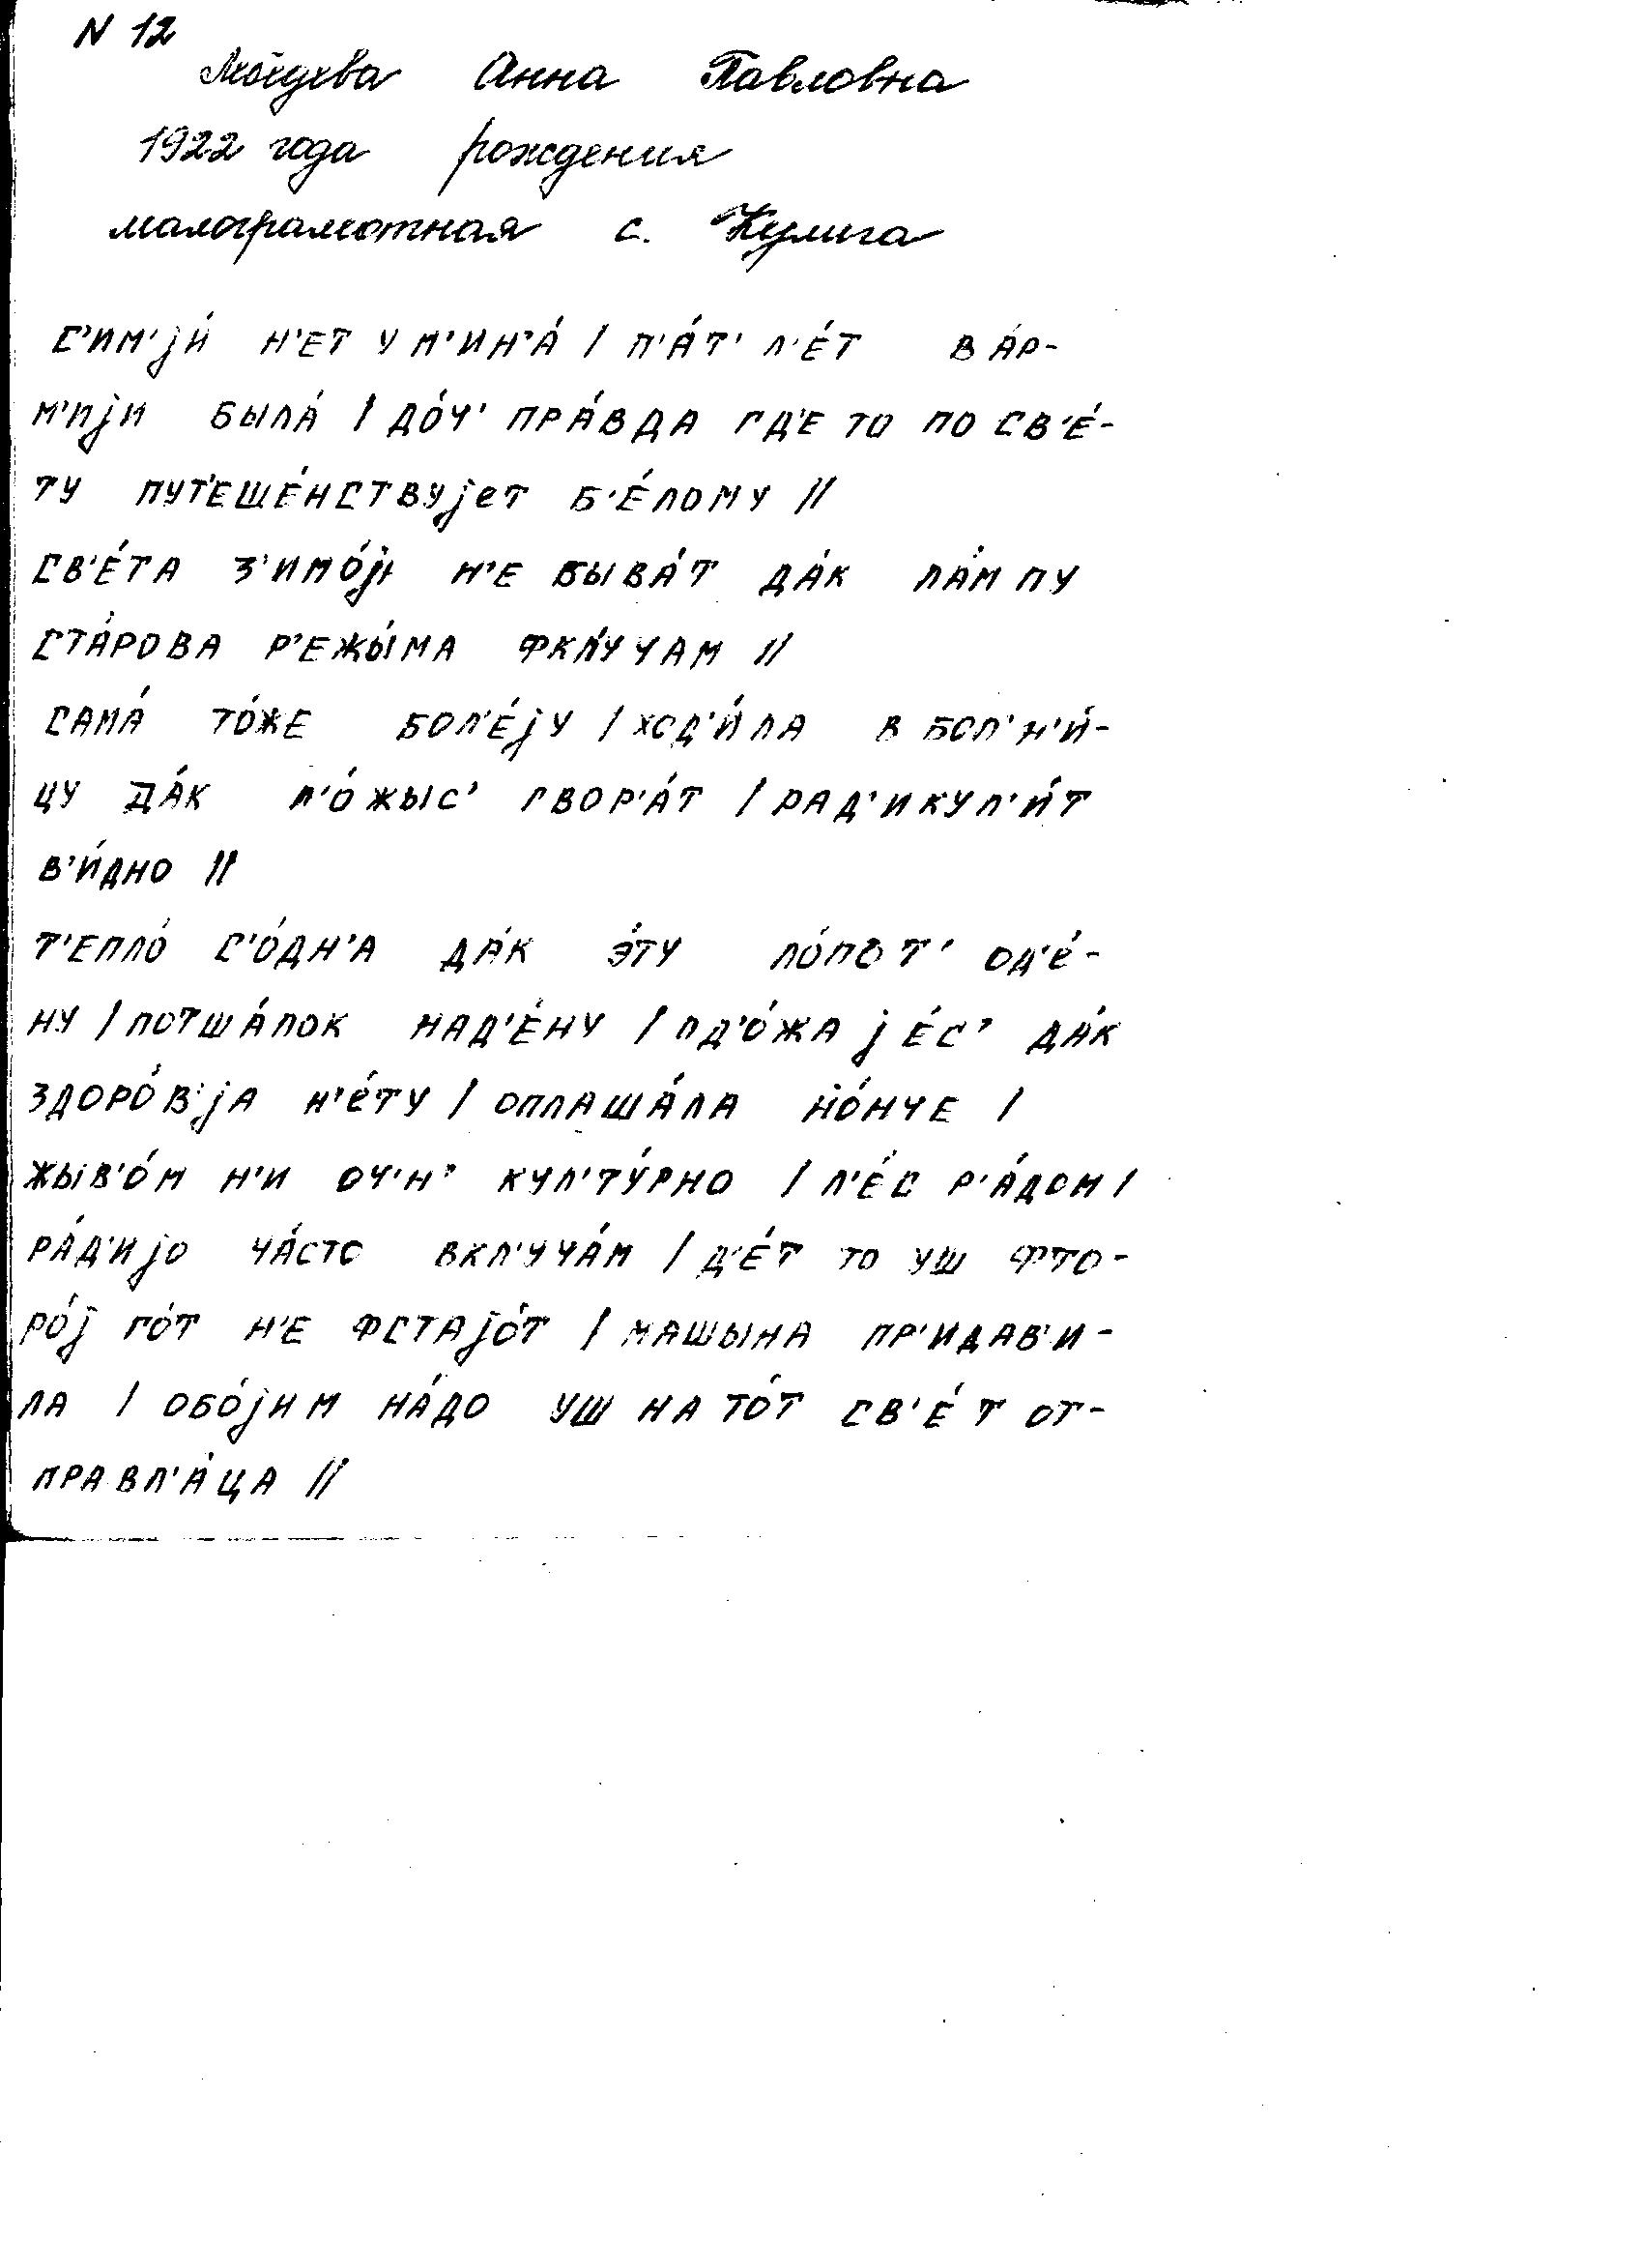 N 12
Анна Павловна
1922 года рождения
малограмотная с. Кулига
с'им'jи́ н'ет у м'ин'а́ / п'а́т' л'е́т в а́р-
м'иjи была́ / до́ч' пра́вда гд'е то по св'е́-
ту пут'еше́нствуjет б'е́лому //
св'е́та з'имо́j н'е быва́т да́к ла́мпу
ста́рова р'ежы́ма фкл'у́чам //
сама́ то́же бол'е́jу / ход'и́ла в бол'н'и́-
цу да́к л'о́жыс' гвор'а́т / рад'икул'и́т
в'и́дно //
т'епло́ с'о́дн'а да́к э́ту ло́пот' од'е́-
ну / потша́лок над'е́ну / од'о́жа jе́с' да́к
здоро́в'jа н'е́ту / оплаша́ла но́нче /
жыв'о́м н'и оч'н' кул'ту́рно / л'е́с р'а́дом /
ра́д'иjо ча́сто вкл'уча́м / д'е́т то уш фто-
ро́j го́т н'е фстаjо́т / машына пр'идав'и-
ла / обо́jим на́до уш на то́т св'е́т от-
правл'а́ца //